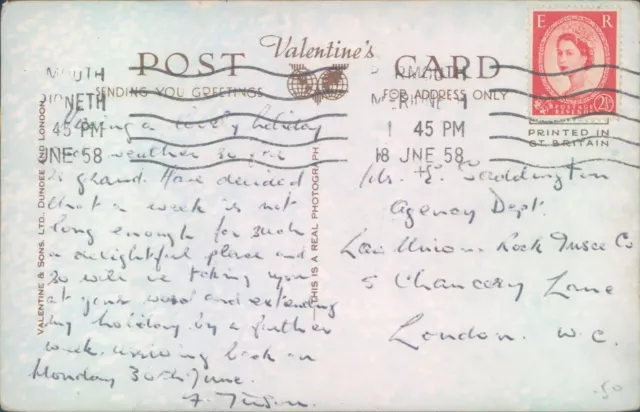 POST Valentine's CARD
SENDING YOU GREETINGS FOR ADDRESS ONLY
E R
POSTAGE REVENUE
2½
PRINTED IN
GT. BRITAIN
MOUTH
45 PM
JNE 58
1 45 PM
18 JNE 58
VALENTINE & SONS. LTD. DUNDEE AND LONDON.
THIS IS A REAL PHOTOGRAPH
Having a lovely holiday
weather so far
is grand. Have decided
that a week is not
long enough for such
a delightful place and
so will be taking you
at your word and extending
my holiday by a further
week, arriving back on
Monday 30th June.
Mr. H. E. Waddington
Agency Dept.
Law Union & Rock Insce Co
5 Chancery Lane
London. W.C.
.50